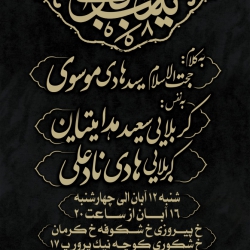 به کلام:
حجت الاسلام سید هادی موسوی
به نفس:
کربلایی سعید هدایتیان
کربلایی هادی نادعلی
شنبه ۱۲ آبان الی چهارشنبه
۱۶ آبان از ساعت ۲۰
خ پیروزی خ شکوفه خ کرمان
خ شکوری کوچه نیک پرور پ ۱۷